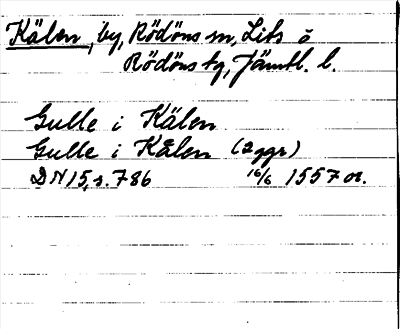 Kälen, by, Rödöns sn, Lits o
Rödöns tg, Jämtl. l.
Gulle i Kälen
Gulle i Kålen (2 ggr)
DN 15, s. 786 16/6 1557 or.